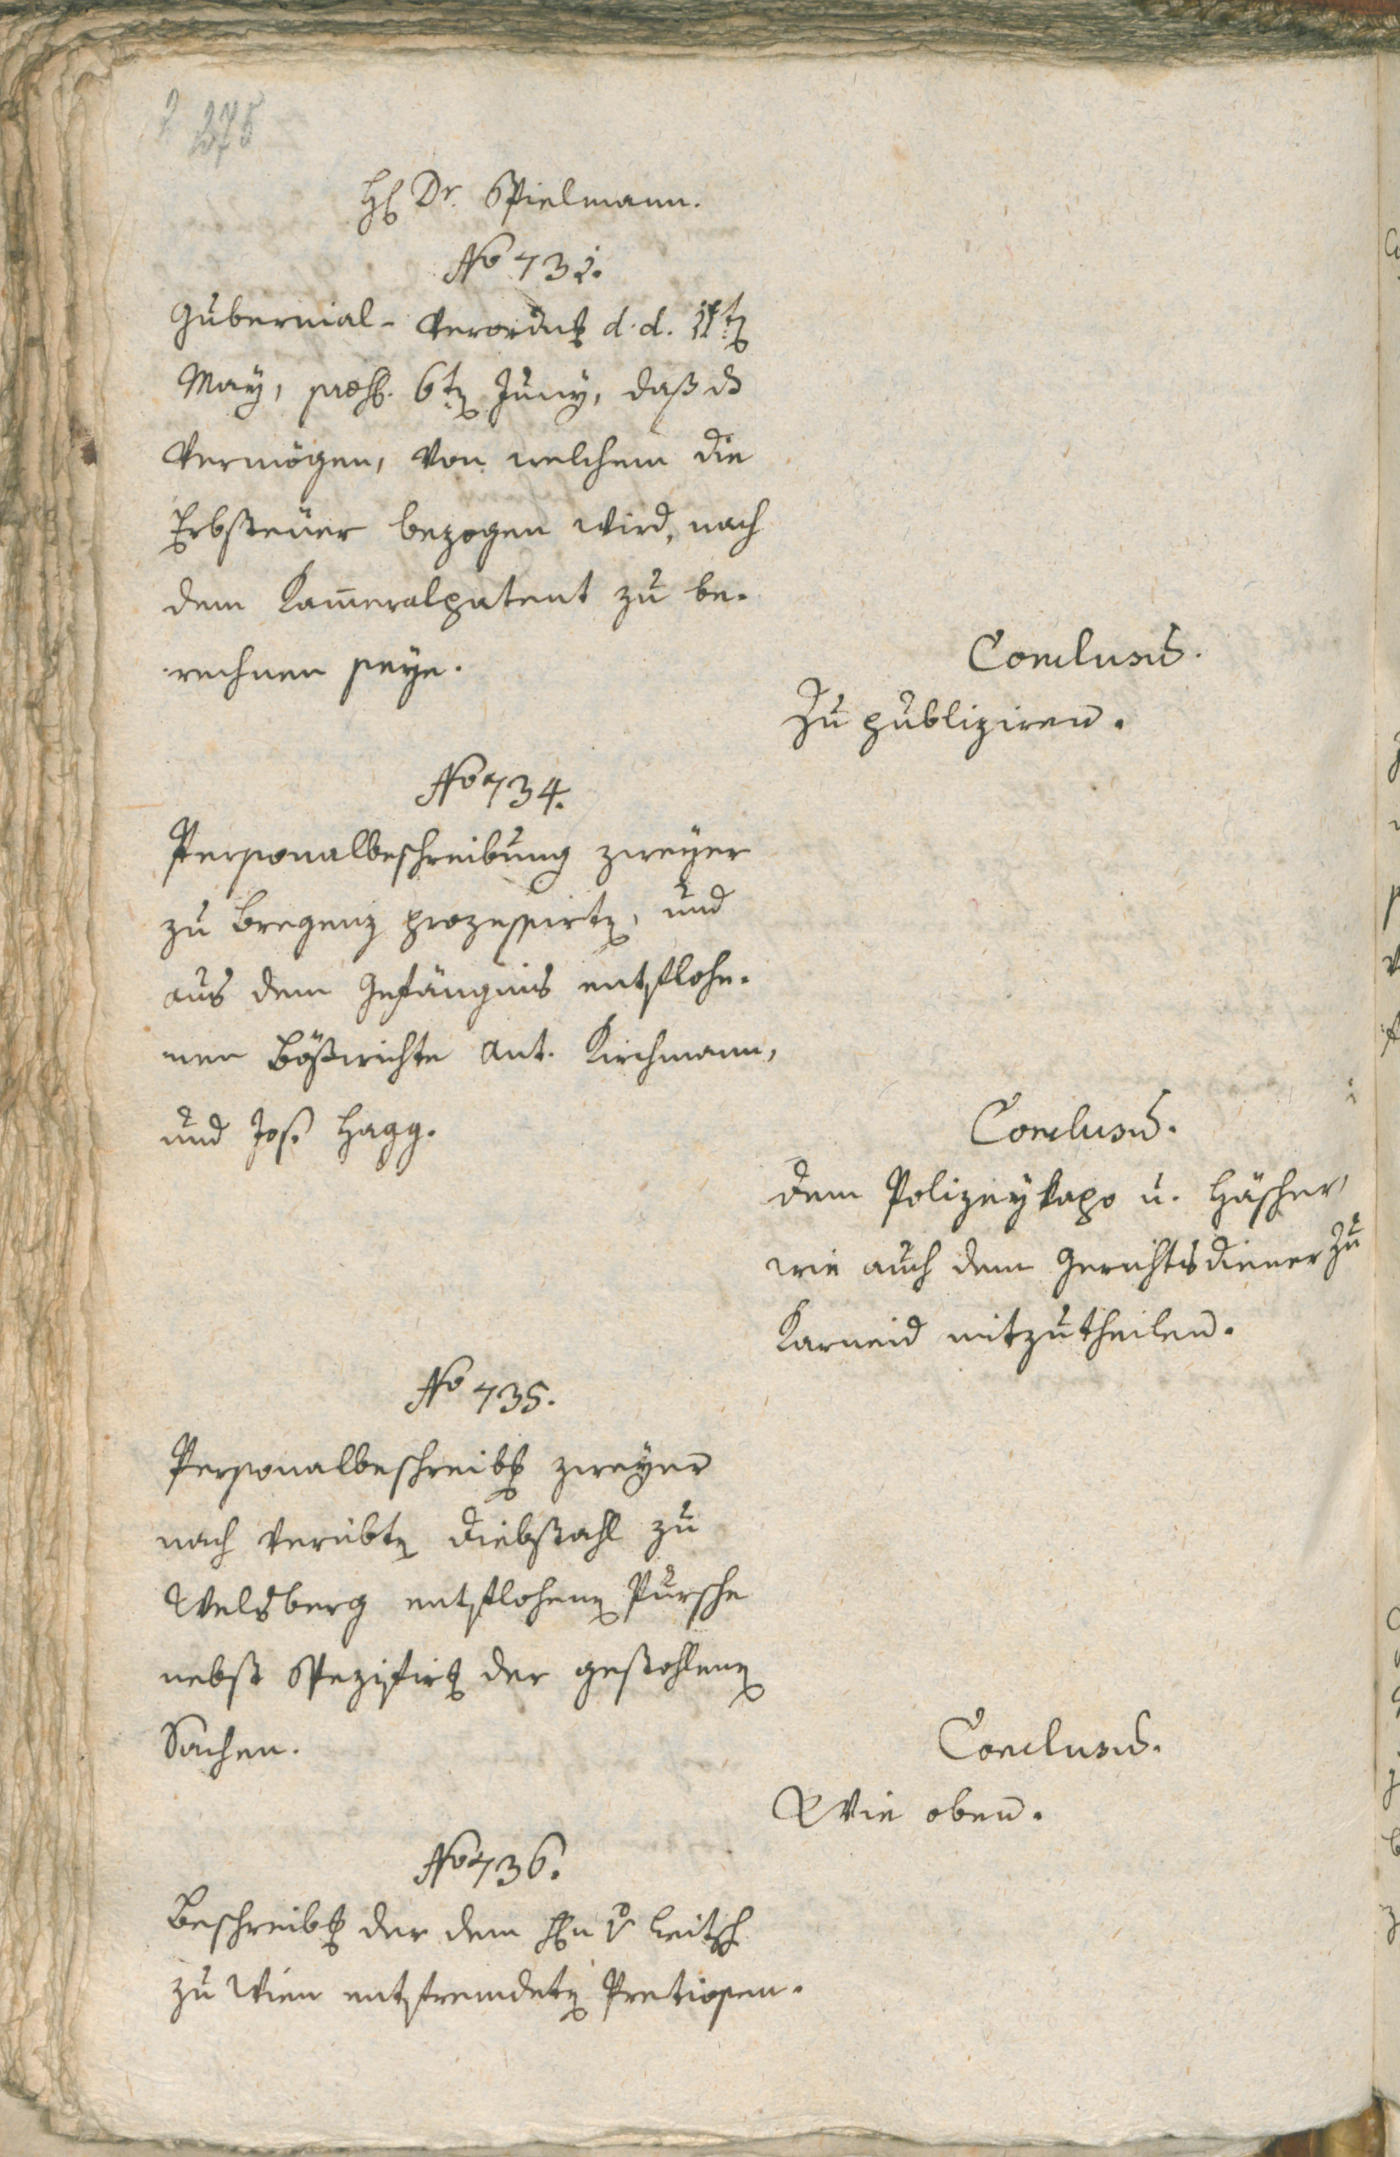 275
H. Dr. Spielmann.
No 732.
Gubernial-Verordng d. d. 11ten
May, præs. 6ten Juny, daß ds
Vermögen, von welchem die
Erbsteuer bezogen wird, nach
dem Kam̅eralpatent zu be-
rechnen seye.
Conclusũ.
Zu publiziren.
No 734.
Personalbeschreibung zweyer
zu Bregenz prozessirten, und
aus dem Gefängnis entflohe-
nen Bößwichte Ant. Kirchmann,
und Jos. Hagg.
Conclusũ.
Dem Polizeykapo u. Häscher,
wie auch dem Gerichtsdiener zu
Karneid mitzutheilen.
No 735.
Personalbeschreibg zweyer
nach verübten Diebstahl zu
Welsberg entflohenen Pursche
nebst Spezifizg der gestohlenen
Sachen.
Conclusũ.
Wie oben.
No 736.
Beschreibg der dem Hn v Leitsch
zu Wien entfremdeten Pretiosen.